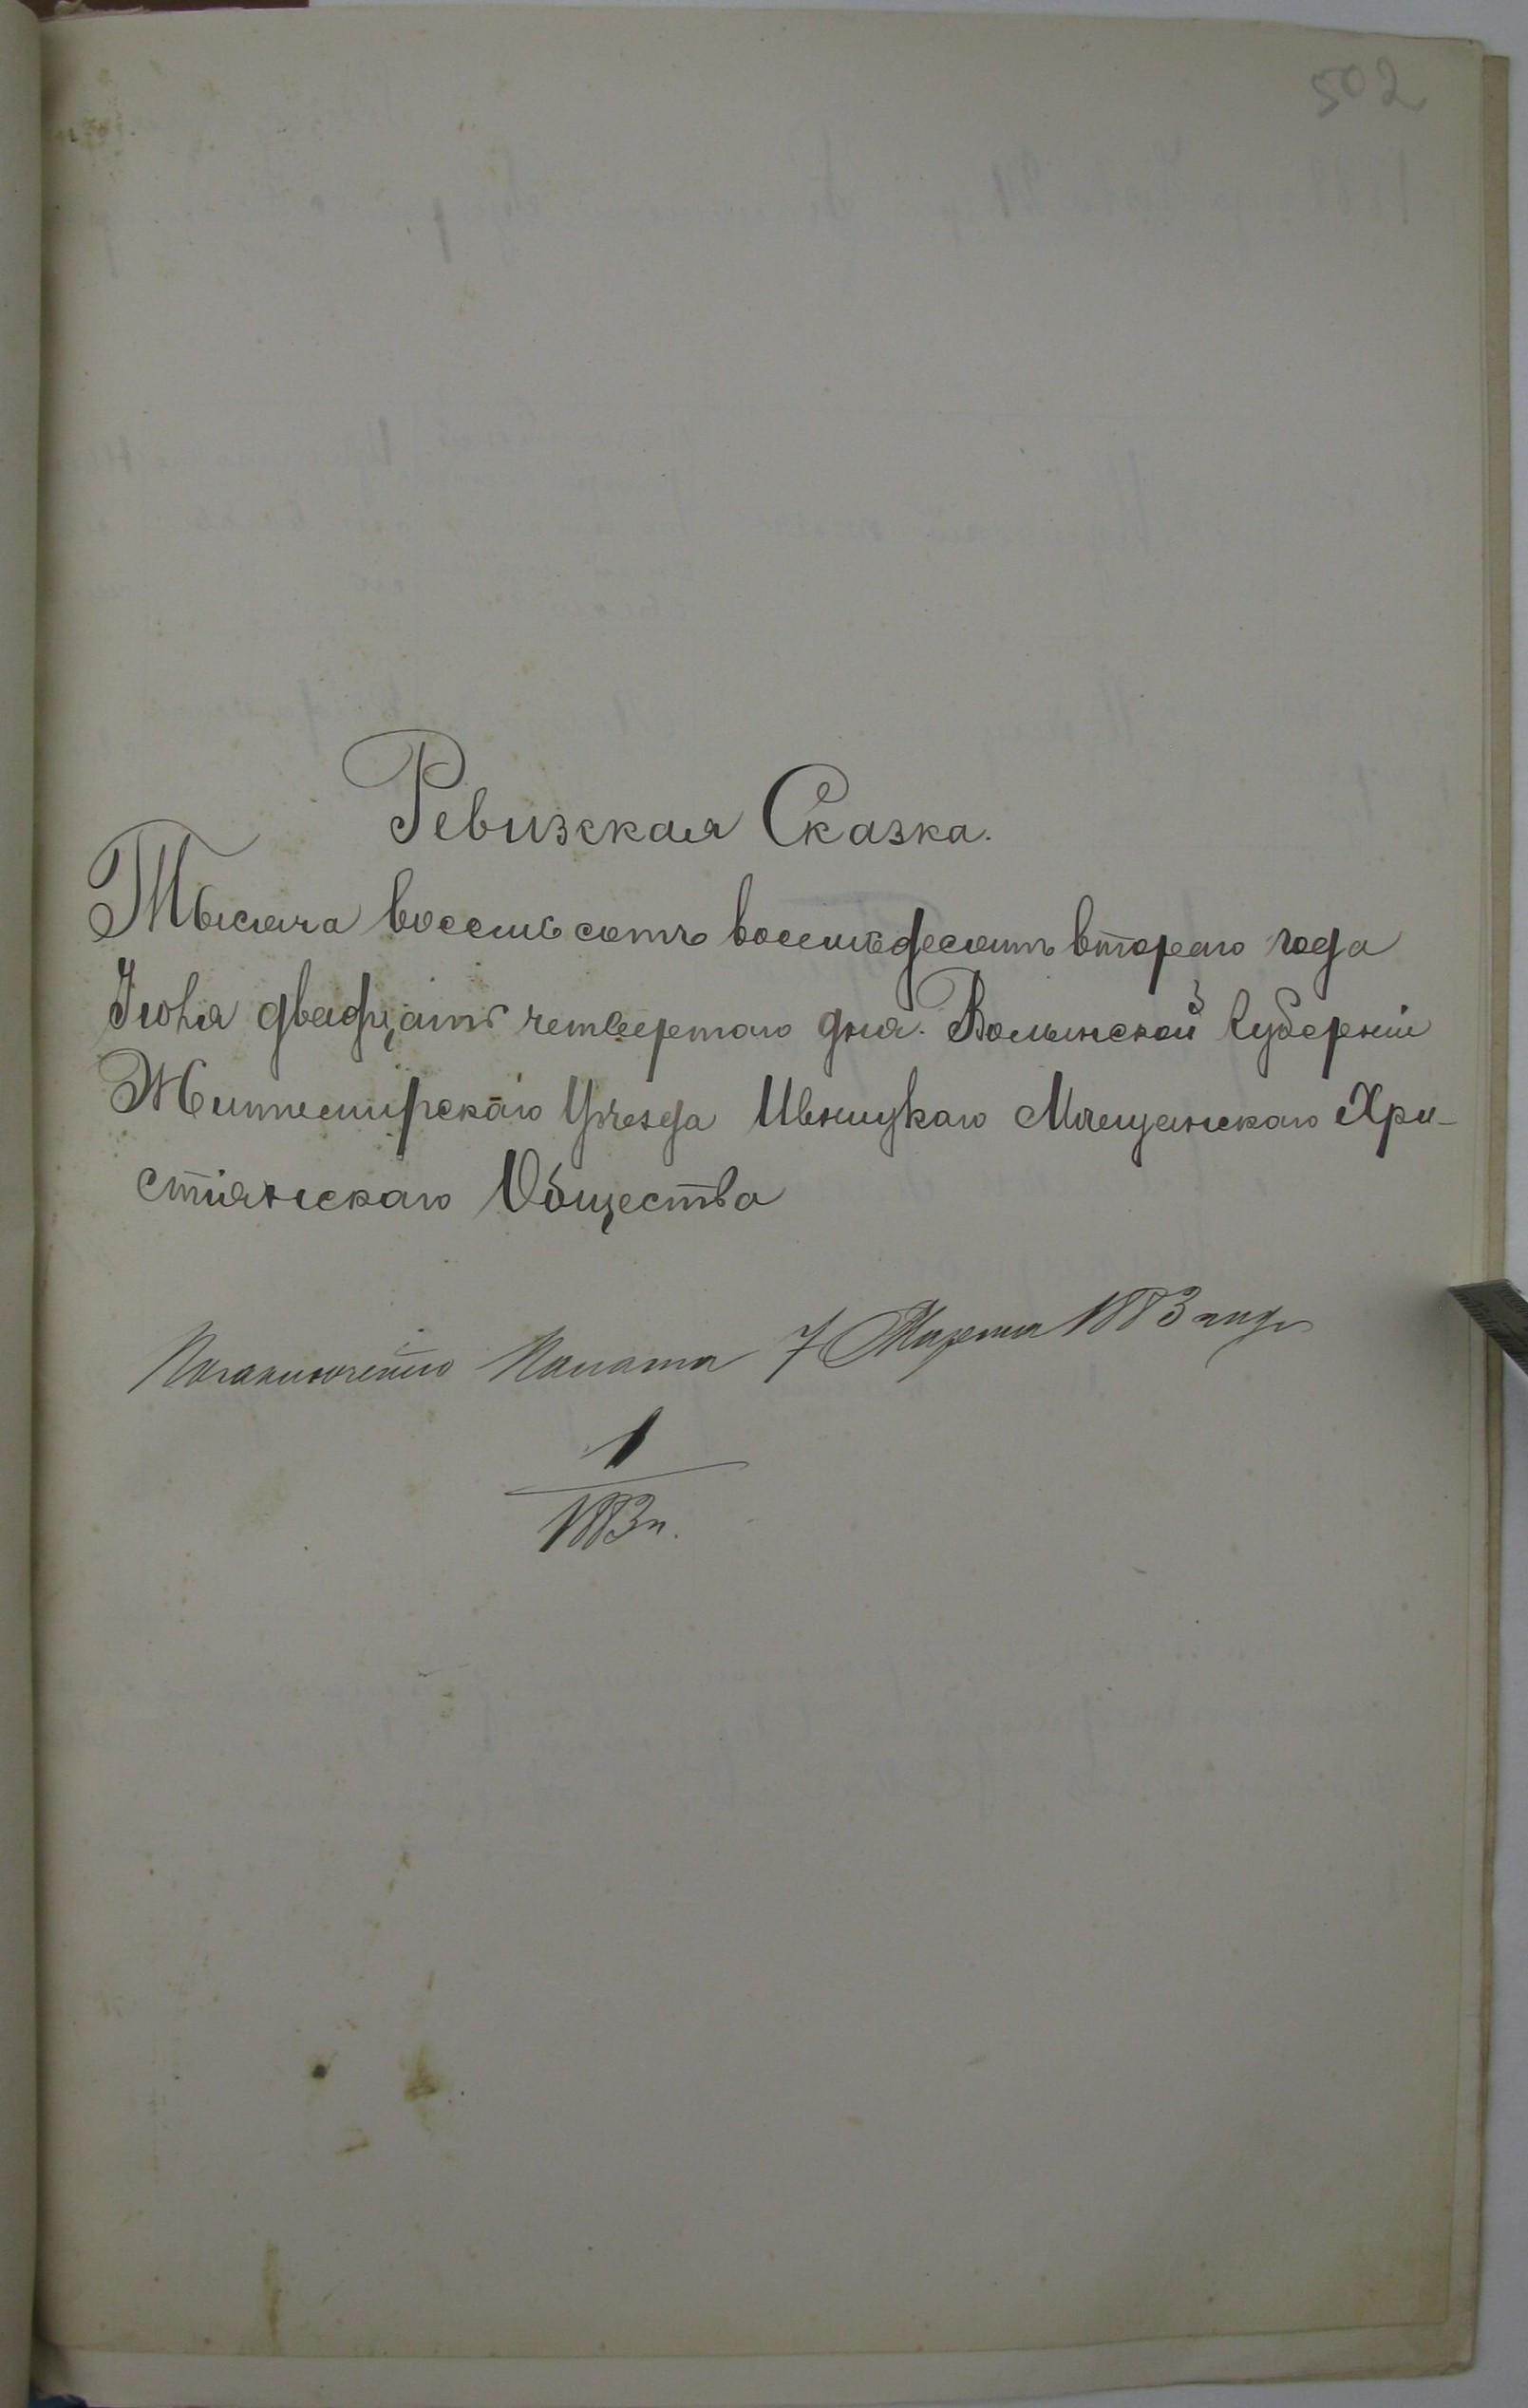 502
Ревизская Сказка.
Тысяча восемьсотъ восемьдесятъ втораго года
Іюня двадцать четвертаго дня. Волынской Губерніи
Житомирскаго Уѣзда Ивницкаго Мѣщанскаго Хри-
стіянскаго Общества
По заключенію Палаты 7 Марта 1883 года
1
1883 г.